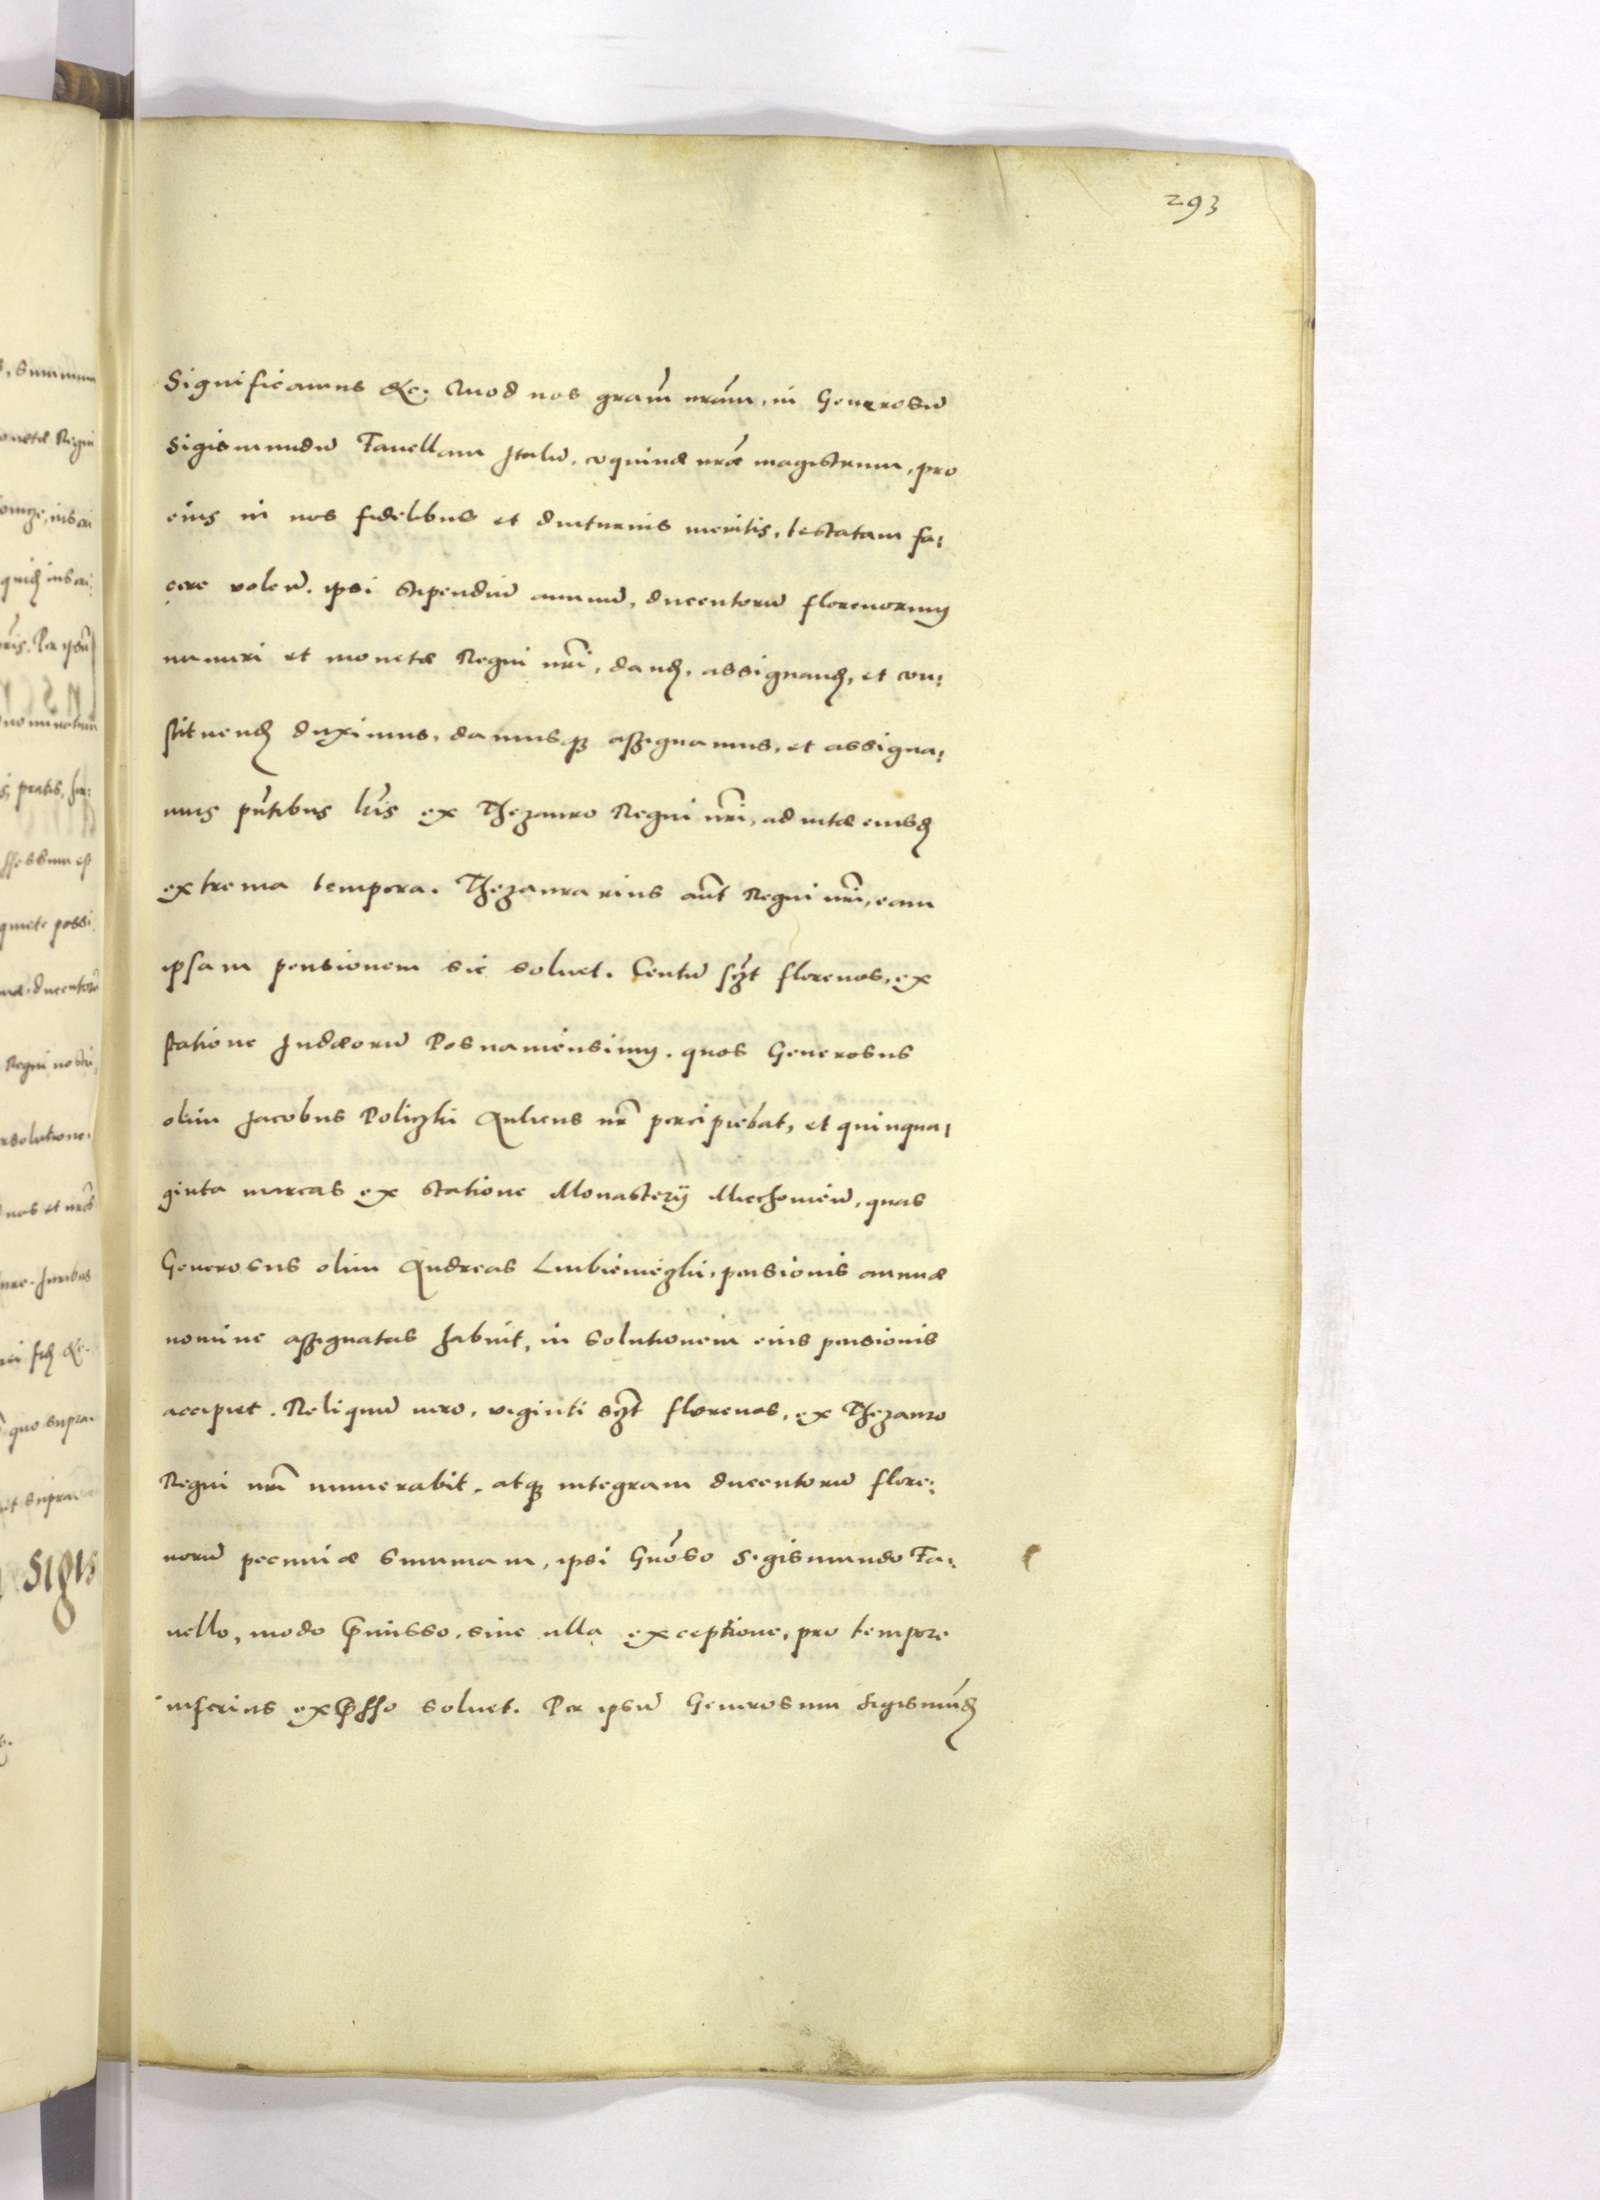 293
Significamus &c. Quod nos grãm nrãm, in Generosũ
Sigismundũ Fauellam Italũ, coquinæ nræ magistrum, pro
eius in nos fidelibus et diuturnis meritis, testatam fa:
cere volẽ. ipsi stipendiũ annuũ, ducentorũ florenorum
numeri et monetæ Regni nri, dand, assignand, et con:
stituend duximus, damusq assignamus, et assigna:
mus pñtibus lris ex Thezauro Regni nri, ad vitæ eiusd
extrema tempora. Thezaurarius aũt Regni nri, eam
ipsam pensionem sic soluet. Centũ sczt florenos, ex
statione Iudæorũ Posnaniensium, quos Generosus
olim Jacobus Policzki Aulicus nr percipiebat, et quinqua:
ginta marcas ex statione Monasterij Miechouieñ, quas
Generosus olim Andreas Lubienieczki, pensionis annuæ
nomine assignatas habuit, in solutionem eius pensionis
accipiet. Reliquũ vero, viginti sczt florenos, ex Thezauro
Regni nri numerabit, atq integram ducentorũ flore:
norũ pecuniæ summam, ipsi Gnõso Sigismundo Fa:
uello, modo pmisso, sine ulla exceptione, pro tempore
inferius expsso soluet. Per ipsũ Generosum Sigismũd